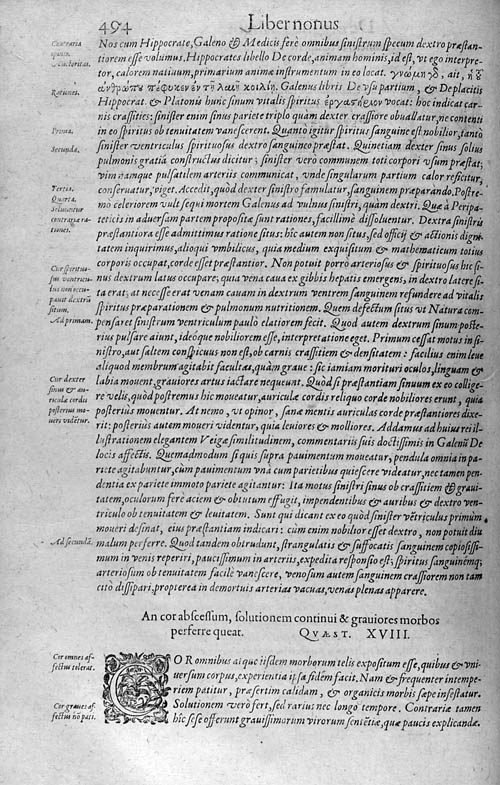 494 Liber nonus
Contraria
Authoritas.
Nos cum Hippocrate, Galeno & Medicis ferè omnibus sinistrum specum dextro præstan-
tiorem esse volumus. Hippocrates libello De corde, animam hominis, id est, vt ego interpre-
tor, calorem natiuum, primarium animæ instrumentum in eo locat. γνώμη γδ, ait, ἡ δ
Rationes.
ἀνθρώπȣ πέφυκεν ἐν τῇ λαιῇ κοιλίῃ. Galenus libris De vsu partium, & De placitis
Hippocrat. & Platonis hunc sinum vitalis spiritus ἐργαστήριον vocat: hoc indicat car-
nis crassities; sinister enim sinus pariete triplo quàm dexter crassiore obuallatur, ne contenti
Prima.
in eo spiritus ob tenuitatem vanescerent. Quantò igitur spiritus sanguine est nobilior, tantò
Secunda.
sinister ventriculus spirituosus dextro sanguineo præstat. Quinetiam dexter sinus solius
pulmonis gratiâ constructus dicitur; sinister verò communem toti corpori vsum præstat;
vim namque pulsatilem arteriis communicat, vnde singularum partium calor reficitur,
Tertia.
conseruatur, viget. Accedit, quòd dexter sinistro famulatur, sanguinem præparando. Postre-
Quarta.
mò celeriorem vult sequi mortem Galenus ad vulnus sinistri, quàm dextri. Quæ à Peripa-
Soluuntur
contraria ra-
tiones.
teticis in aduersam partem propositæ sunt rationes, facillimè dissoluentur. Dextra sinistris
præstantiora esse admittimus ratione situs: hîc autem non situs, sed officij & actionis digni-
tatem inquirimus, alioqui vmbilicus, quia medium exquisitum & mathematicum totius
corporis occupat, corde esset præstantior. Non potuit porrò arteriosus & spirituosus hic si-
Cur spirituo-
sus ventricu-
lus non occu-
pauit dextrū
situm.
nus dextrum latus occupare, quia vena caua ex gibbis hepatis emergens, in dextro latere si-
ta erat; at necesse erat venam cauam in dextrum ventrem sanguinem refundere ad vitalis
spiritus præparationem & pulmonum nutritionem. Quem defectum situs vt Natura com-
Ad primam.
pensaret sinistrum ventriculum paulò elatiorem fecit. Quod autem dextrum sinum poste-
rius pulsare aiunt, ideóque nobiliorem esse, interpretatione eget. Primum cessat motus in si-
nistro, aut saltem conspicuus non est, ob carnis crassitiem & densitatem: facilius enim leue
aliquod membrum agitabit facultas, quàm graue: sic iamiam morituri oculos, linguam &
labia mouent, grauiores artus iactare nequeunt. Quòd si præstantiam sinuum ex eo collige-
Cur dexter
sinus & au-
ricula cordis
posterius mo-
ueri videtur.
re velis, quòd postremus hic moueatur, auriculæ cordis reliquo corde nobiliores erunt, quia
posteriùs mouentur. At nemo, vt opinor, sanæ mentis auriculas corde præstantiores dixe-
rit: posteriùs autem moueri videntur, quia leuiores & molliores. Addamus ad huius rei il-
lustrationem elegantem Veigæ similitudinem, commentariis suis doctissimis in Galenū De
locis affectis. Quemadmodum si quis supra pauimentum moueatur, pendula omnia in pa-
riete agitabuntur, cùm pauimentum vnà cum parietibus quiescere videatur, nec tamen pen-
dentia ex pariete immoto pariete agitantur: Ita motus sinistri sinus ob crassitiem & graui-
tatem, oculorum ferè aciem & obtutum effugit, impendentibus & auribus & dextro ven-
triculo ob tenuitatem & leuitatem. Sunt qui dicant ex eo quòd sinister vētriculus primùm
moueri desinat, eius præstantiam indicari: cùm enim nobilior esset dextro, non potuit diu
Ad secundā.
malum perferre. Quod tandem obtrudunt, strangulatis & suffocatis sanguinem copiosissi-
mum in venis reperiri, paucissimum in arteriis, expedita responsio est; spiritus sanguinémq;
arteriosum ob tenuitatem facilè vanescere, venosum autem sanguinem crassiorem non tam
citò dissipari, propterea in demortuis arterias vacuas, venas plenas apparere.
An cor abscessum, solutionem continui & grauiores morbos
perferre queat. QVÆST. XVIII.
Cor omnes af-
fectus tolerat.
COR omnibus atque iisdem morborum telis expositum esse, quibus & vni-
uersum corpus, experientia ipsa fidem facit. Nam & frequenter intempe-
riem patitur, præsertim calidam, & organicis morbis sæpe infestatur.
Cor graues af-
fectus nō pati.
Solutionem verò fert, sed rarius nec longo tempore. Contrariæ tamen
hîc sese offerunt grauissimorum virorum sentētiæ, quæ paucis explicandæ.